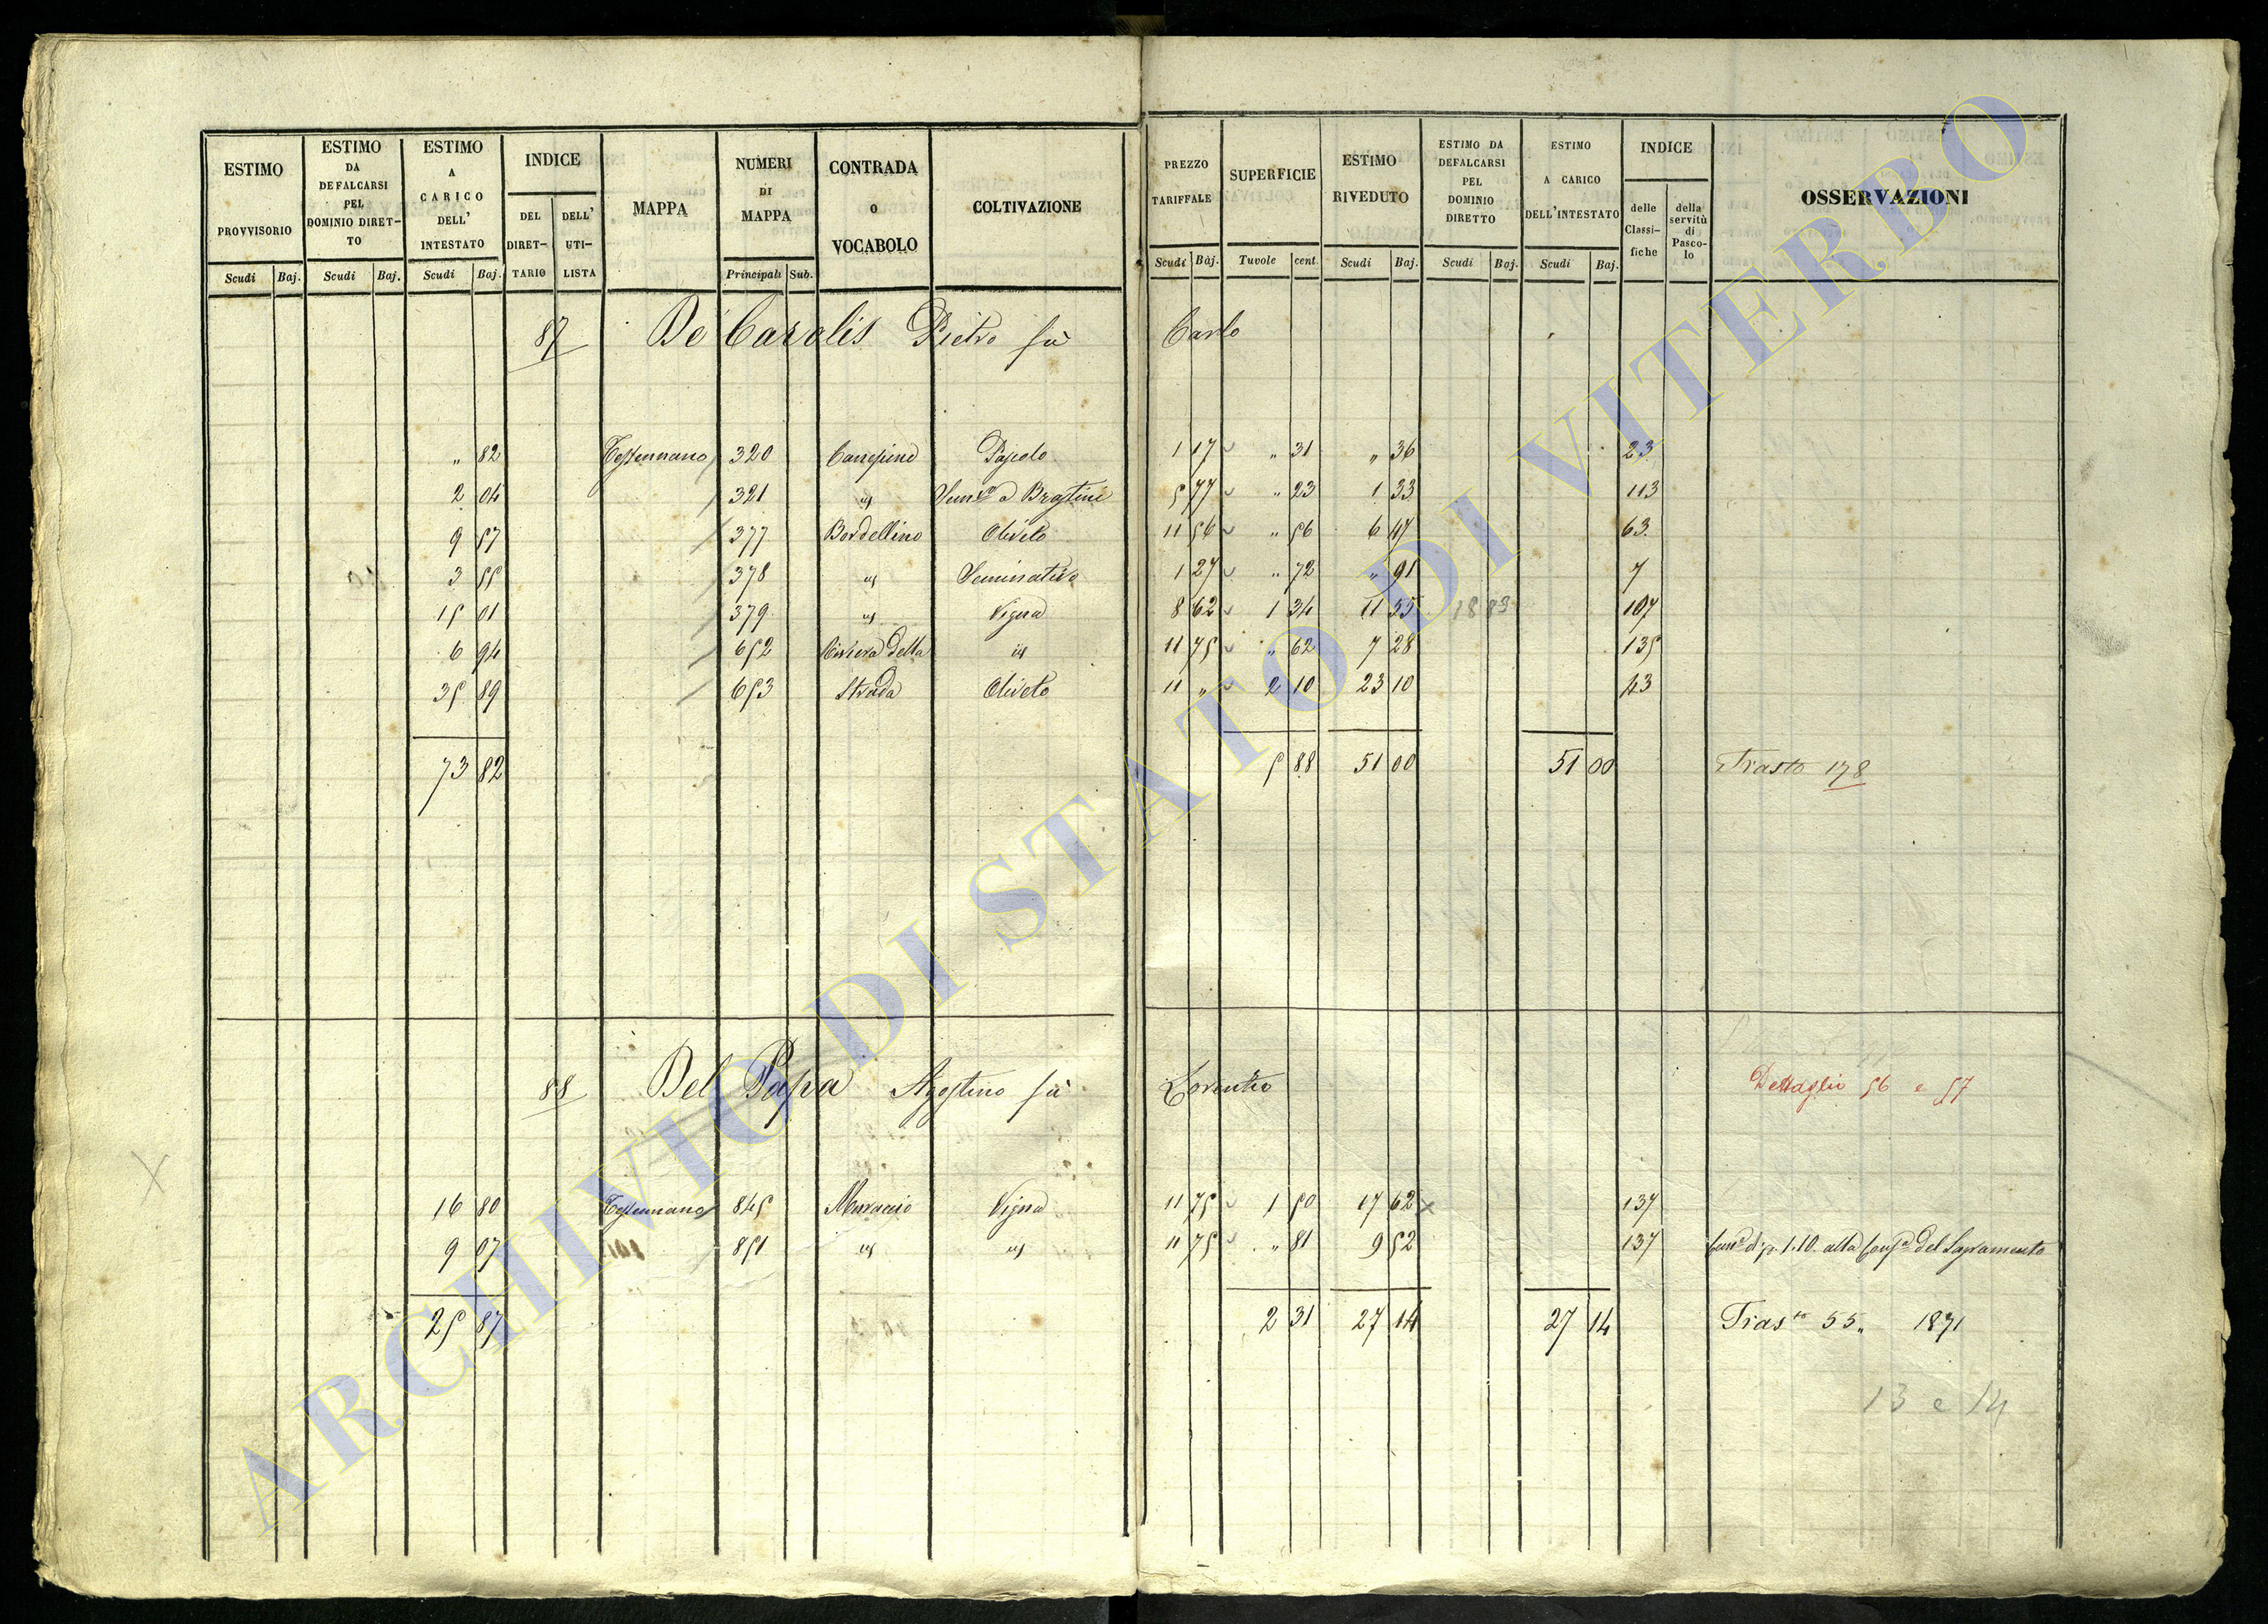 ESTIMO PROVVISORIO Scudi Baj.
ESTIMO DA DEFALCARSI PEL DOMINIO DIRETTO Scudi Baj.
ESTIMO A CARICO DELL' INTESTATO Scudi Baj.
INDICE DEL DIRETTARIO DELL' UTILISTA
MAPPA
NUMERI DI MAPPA Principali Sub.
CONTRADA O VOCABOLO
COLTIVAZIONE
PREZZO TARIFFALE Scudi Baj.
SUPERFICIE Tavole cent.
ESTIMO RIVEDUTO Scudi Baj.
ESTIMO DA DEFALCARSI PEL DOMINIO DIRETTO Scudi Baj.
ESTIMO A CARICO DELL'INTESTATO Scudi Baj.
INDICE delle Classifiche della servitù di Pascolo
OSSERVAZIONI
87 De Carolis Pietro fù Carlo
" 82 320 1 17 " 31 " 36 23
2 04 321 id 5 77 " 23 1 33 113
9 57 377 Bordellino Oliveto 11 56 " 56 6 47 63
3 55 378 id Seminativo 1 27 " 72 " 91 7
15 01 379 id Vigna 8 62 1 34 11 55 18 83 107
6 94 652 Riviera della id 11 75 " 62 7 28 135
35 89 653 Strada Oliveto 11 " 2 10 23 10 43
73 82 5 88 51 00 51 00 Trasto 178
88 Del Papa Agostino fù Lorenzo Dettaglio 56 e 57
16 80 845 Vigna 11 75 1 50 17 62 x 137
9 07 851 id id 11 75 " 81 9 52 137 alla del Sagramento
25 87 2 31 27 14 27 14 Tras.to 55 1871
13 e 14
X
ARCHIVIO DI STATO DI VITERBO